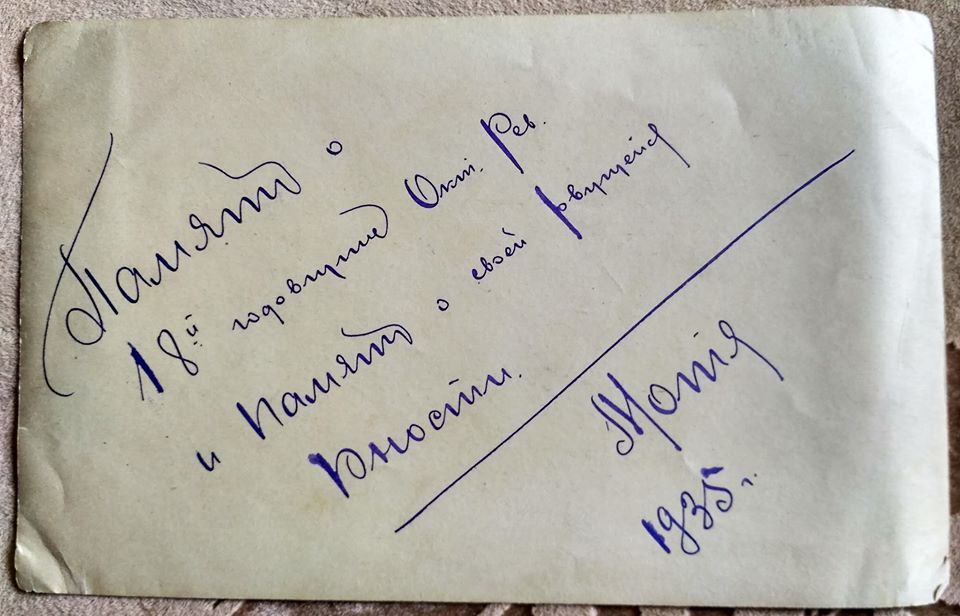 Память о
18й годовщине Окт. Рев.
и память о своей рвущейся
Юности.
Мотя
1935 г.